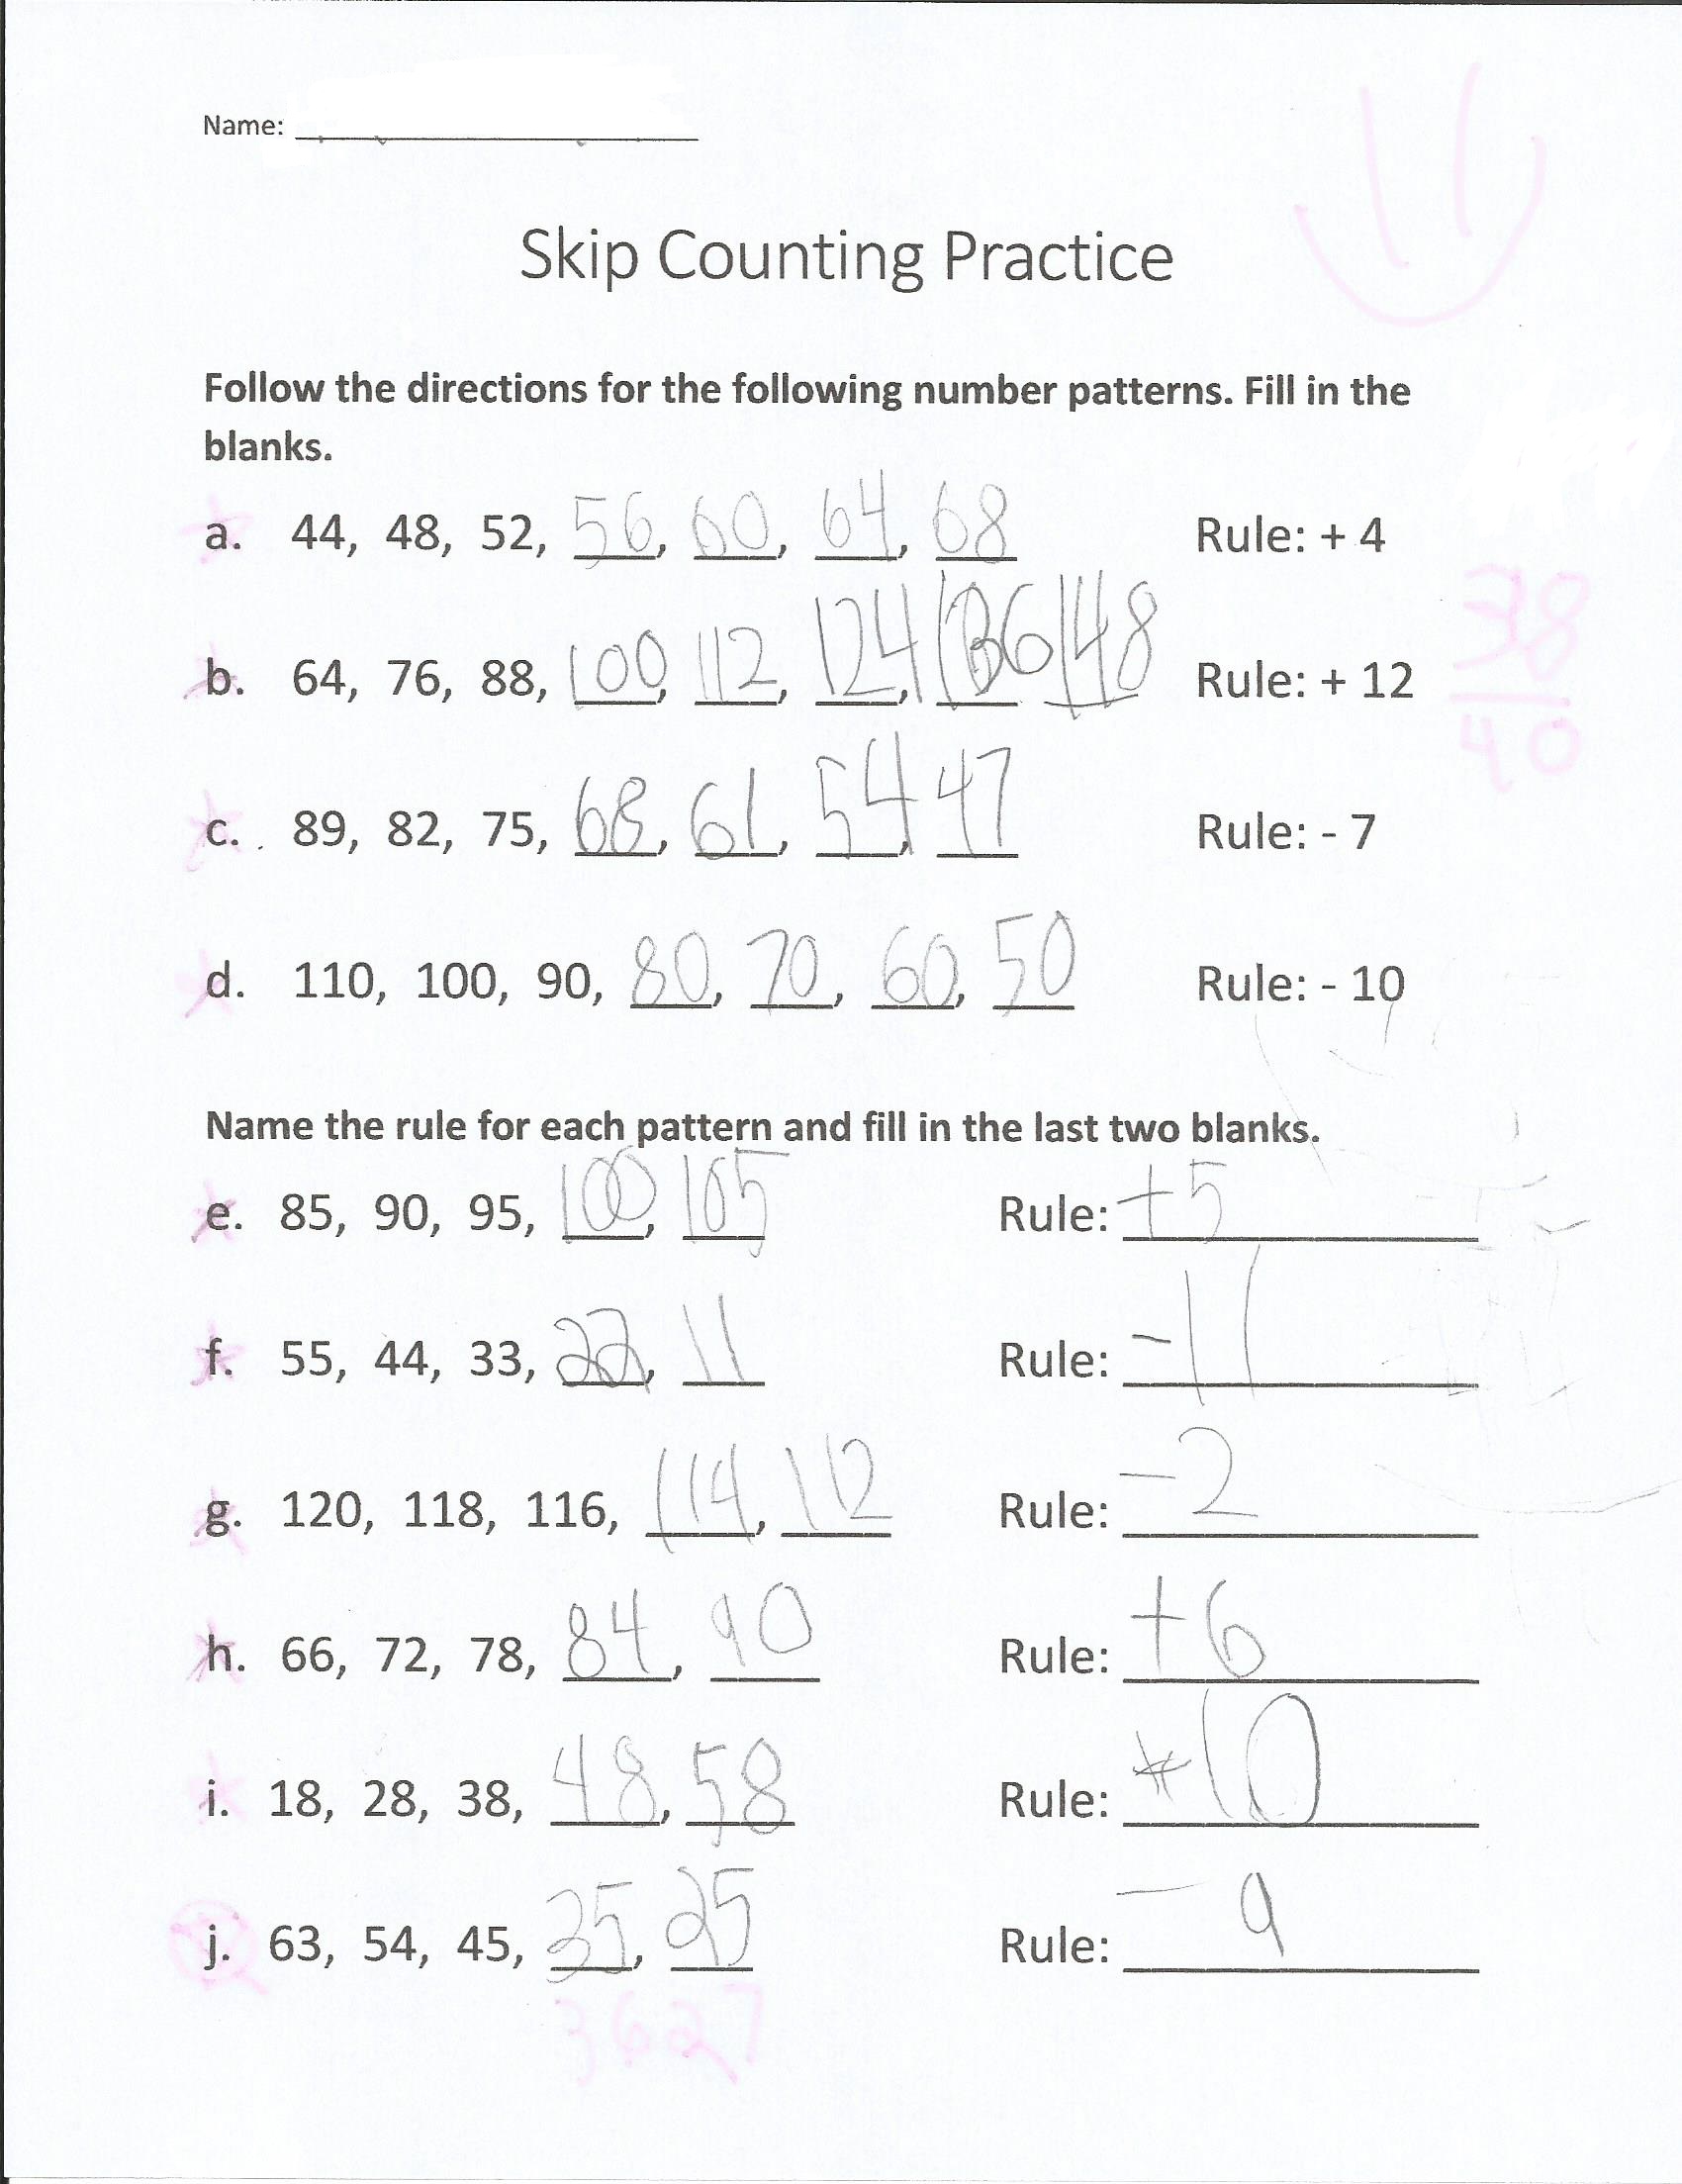 Name:
Skip Counting Practice
Follow the directions for the following number patterns. Fill in the
blanks.
a. 44, 48, 52, 56, 60, 64, 68 Rule: + 4
b. 64, 76, 88, 100, 112, 124, 136 148 Rule: + 12
38
40
c. 89, 82, 75, 68, 61, 54, 47 Rule: - 7
d. 110, 100, 90, 80, 70, 60, 50 Rule: - 10
Name the rule for each pattern and fill in the last two blanks.
e. 85, 90, 95, 100, 105 Rule: +5
f. 55, 44, 33, 22, 11 Rule: -11
g. 120, 118, 116, 114, 112 Rule: -2
h. 66, 72, 78, 84, 90 Rule: +6
i. 18, 28, 38, 48, 58 Rule: +10
j. 63, 54, 45, 35, 25 Rule: - 9
36 27